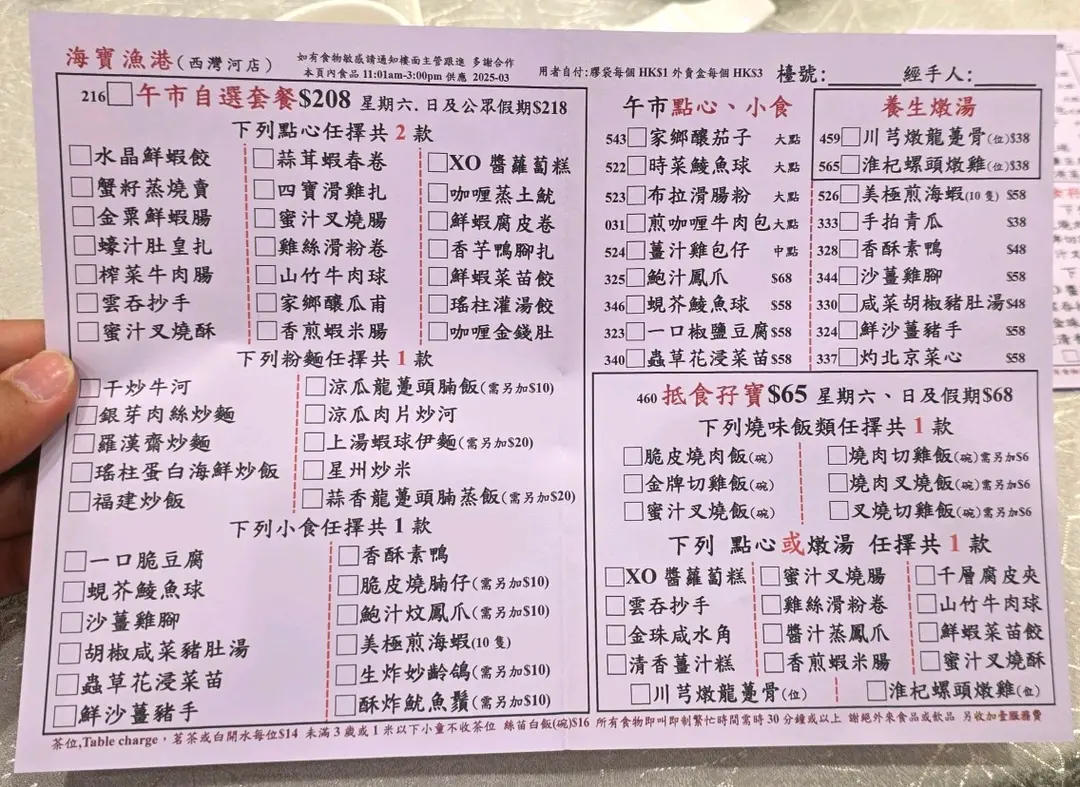 海寶漁港(西灣河店)
如有食物敏感請通知樓面主管跟進 多謝合作
本頁內食品 11:01am-3:00pm 供應 2025-03
用者自付:膠袋每個 HK$1 外賣盒每個 HK$3
檯號:
經手人:
216 午市自選套餐$208 星期六﹑日及公眾假期$218
下列點心任擇共 2 款
水晶鮮蝦餃 蒜茸蝦春卷 XO 醬蘿蔔糕
蟹籽蒸燒賣 四寶滑雞扎 咖喱蒸土魷
金粟鮮蝦腸 蜜汁叉燒腸 鮮蝦腐皮卷
蠔汁肚皇扎 雞絲滑粉卷 香芋鴨腳扎
榨菜牛肉腸 山竹牛肉球 鮮蝦菜苗餃
雲吞抄手 家鄉釀瓜甫 瑤柱灌湯餃
蜜汁叉燒酥 香煎蝦米腸 咖喱金錢肚
下列粉麵任擇共 1 款
干炒牛河 涼瓜龍躉頭腩飯(需另加$10)
銀芽肉絲炒麵 涼瓜肉片炒河
羅漢齋炒麵 上湯蝦球伊麵(需另加$20)
瑤柱蛋白海鮮炒飯 星州炒米
福建炒飯 蒜香龍躉頭腩蒸飯(需另加$20)
下列小食任擇共 1 款
一口脆豆腐 香酥素鴨
蜆芥鯪魚球 脆皮燒腩仔(需另加$10)
沙薑雞腳 鮑汁炆鳳爪(需另加$10)
胡椒咸菜豬肚湯 美極煎海蝦(10 隻)
蟲草花浸菜苗 生炸妙齡鴿(需另加$10)
鮮沙薑豬手 酥炸魷魚鬚(需另加$10)
午市點心、小食
543 家鄉釀茄子 大點
522 時菜鯪魚球 大點
523 布拉滑腸粉 大點
031 煎咖喱牛肉包 大點
524 薑汁雞包仔 中點
325 鮑汁鳳爪 $68
346 蜆芥鯪魚球 $58
323 一口椒鹽豆腐 $58
340 蟲草花浸菜苗 $58
養生燉湯
459 川芎燉龍躉骨(位)$38
565 淮杞螺頭燉雞(位)$38
526 美極煎海蝦(10 隻) $58
333 手拍青瓜 $38
328 香酥素鴨 $48
344 沙薑雞腳 $58
330 咸菜胡椒豬肚湯 $48
324 鮮沙薑豬手 $58
337 灼北京菜心 $58
460 抵食孖寶$65 星期六、日及假期$68
下列燒味飯類任擇共 1 款
脆皮燒肉飯(碗) 燒肉切雞飯(碗)需另加$6
金牌切雞飯(碗) 燒肉叉燒飯(碗)需另加$6
蜜汁叉燒飯(碗) 叉燒切雞飯(碗)需另加$6
下列 點心或燉湯 任擇共 1 款
XO 醬蘿蔔糕 蜜汁叉燒腸 千層腐皮夾
雲吞抄手 雞絲滑粉卷 山竹牛肉球
金珠咸水角 醬汁蒸鳳爪 鮮蝦菜苗餃
清香薑汁糕 香煎蝦米腸 蜜汁叉燒酥
川芎燉龍躉骨(位) 淮杞螺頭燉雞(位)
茶位,Table charge，茗茶或白開水每位$14 未滿 3 歲或 1 米以下小童不收茶位 絲苗白飯(碗)$16 所有食物即叫即制繁忙時間需時 30 分鐘或以上 謝絕外來食品或飲品 另收加壹服務費